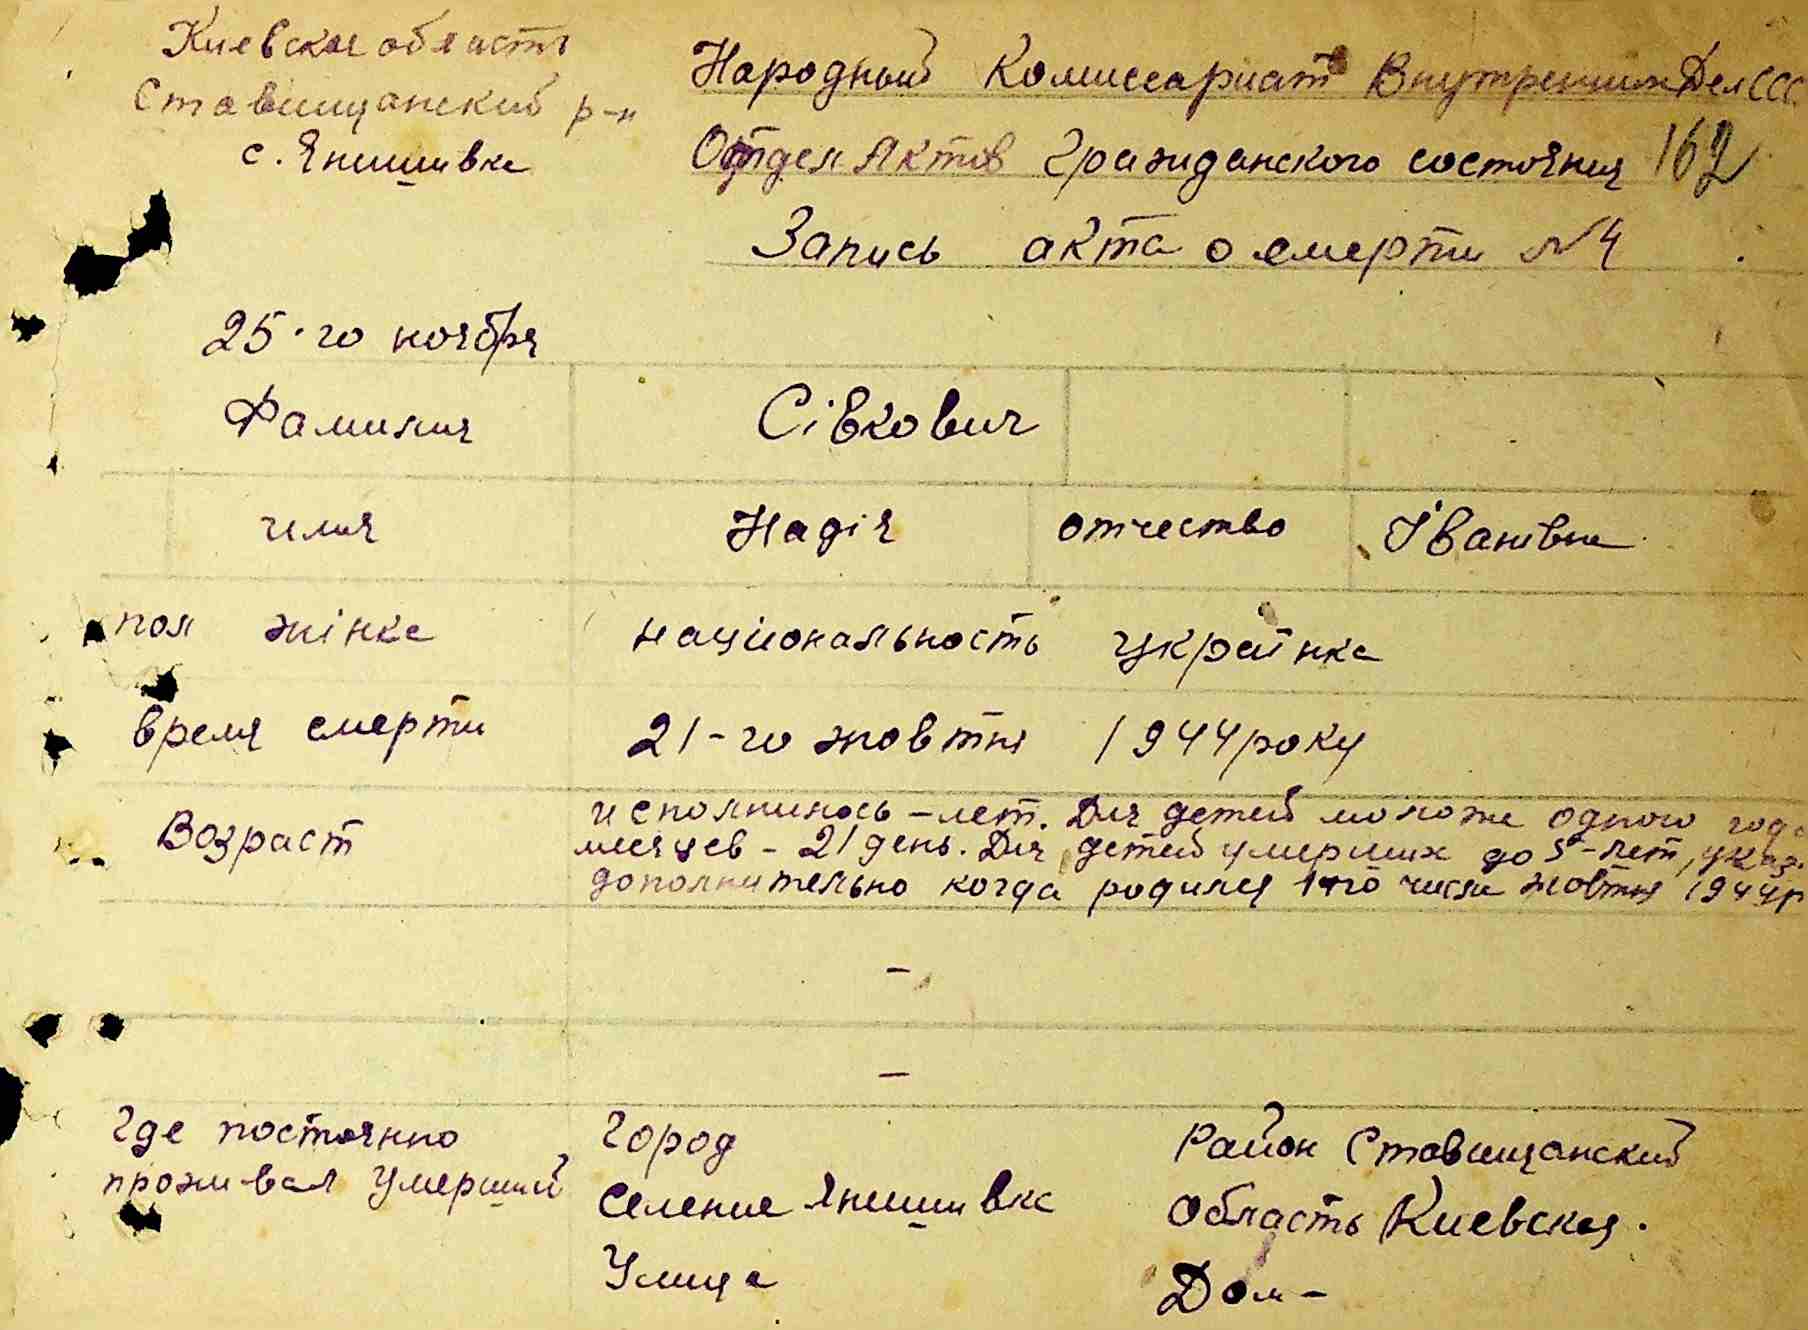 Киевская область
Ставищанский р-н
с. Янишивка
Народный Комиссариат Внутренних Дел ССС
Отдел Актов Гражданского состояния 162
Запись акта о смерти №4
25-го ноября
Фамилия Сівкович
имя Надія отчество Іванівна
пол жінка национальность українка
время смерти 21-го жовтня 1944 року
Возраст
исполнилось - лет. Для детей моложе одного года
месяцев - 21 день. Для детей умерших до 5-лет, указ.
дополнительно когда родился 1-го числа жовтня 1944 р
-
-
Где постоянно
проживал умерший
Город
Селение Янишивка
Улица
Район Ставищанский
Область Киевская.
Дом -